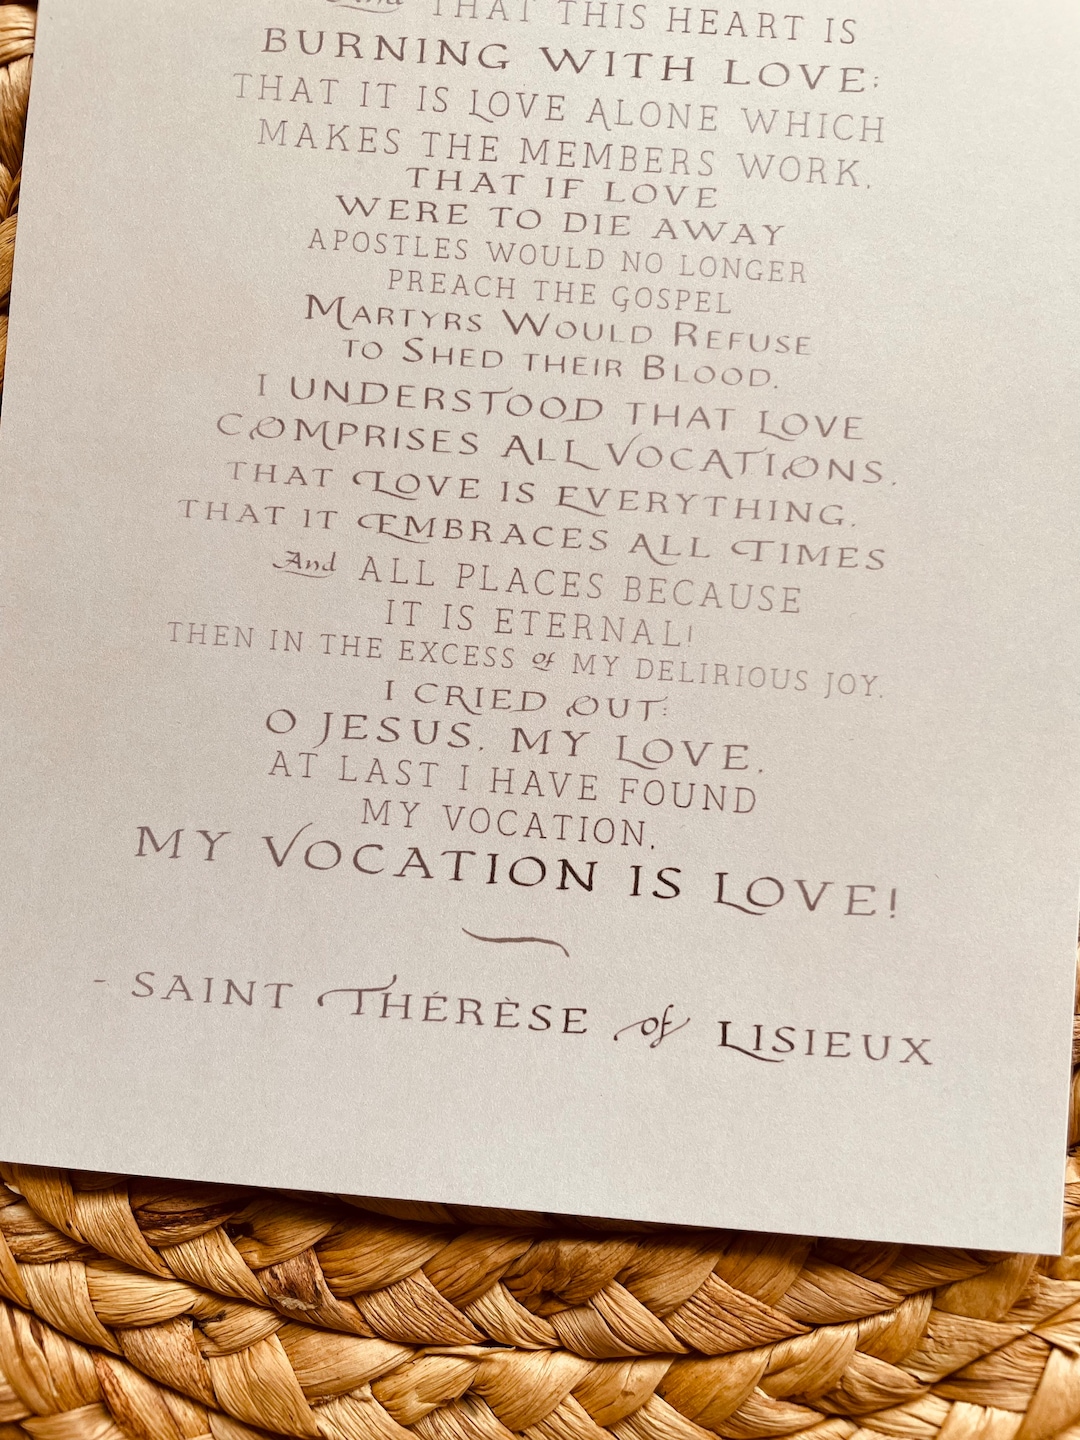 And THAT THIS HEART IS
BURNING WITH LOVE;
THAT IT IS LOVE ALONE WHICH
MAKES THE MEMBERS WORK,
THAT IF LOVE
WERE TO DIE AWAY
APOSTLES WOULD NO LONGER
PREACH THE GOSPEL
MARTYRS WOULD REFUSE
TO SHED THEIR BLOOD.
I UNDERSTOOD THAT LOVE
COMPRISES ALL VOCATIONS,
THAT LOVE IS EVERYTHING,
THAT IT EMBRACES ALL TIMES
And ALL PLACES BECAUSE
IT IS ETERNAL!
THEN IN THE EXCESS of MY DELIRIOUS JOY,
I CRIED OUT:
O JESUS, MY LOVE,
AT LAST I HAVE FOUND
MY VOCATION,
MY VOCATION IS LOVE!
- SAINT THÉRÈSE of LISIEUX